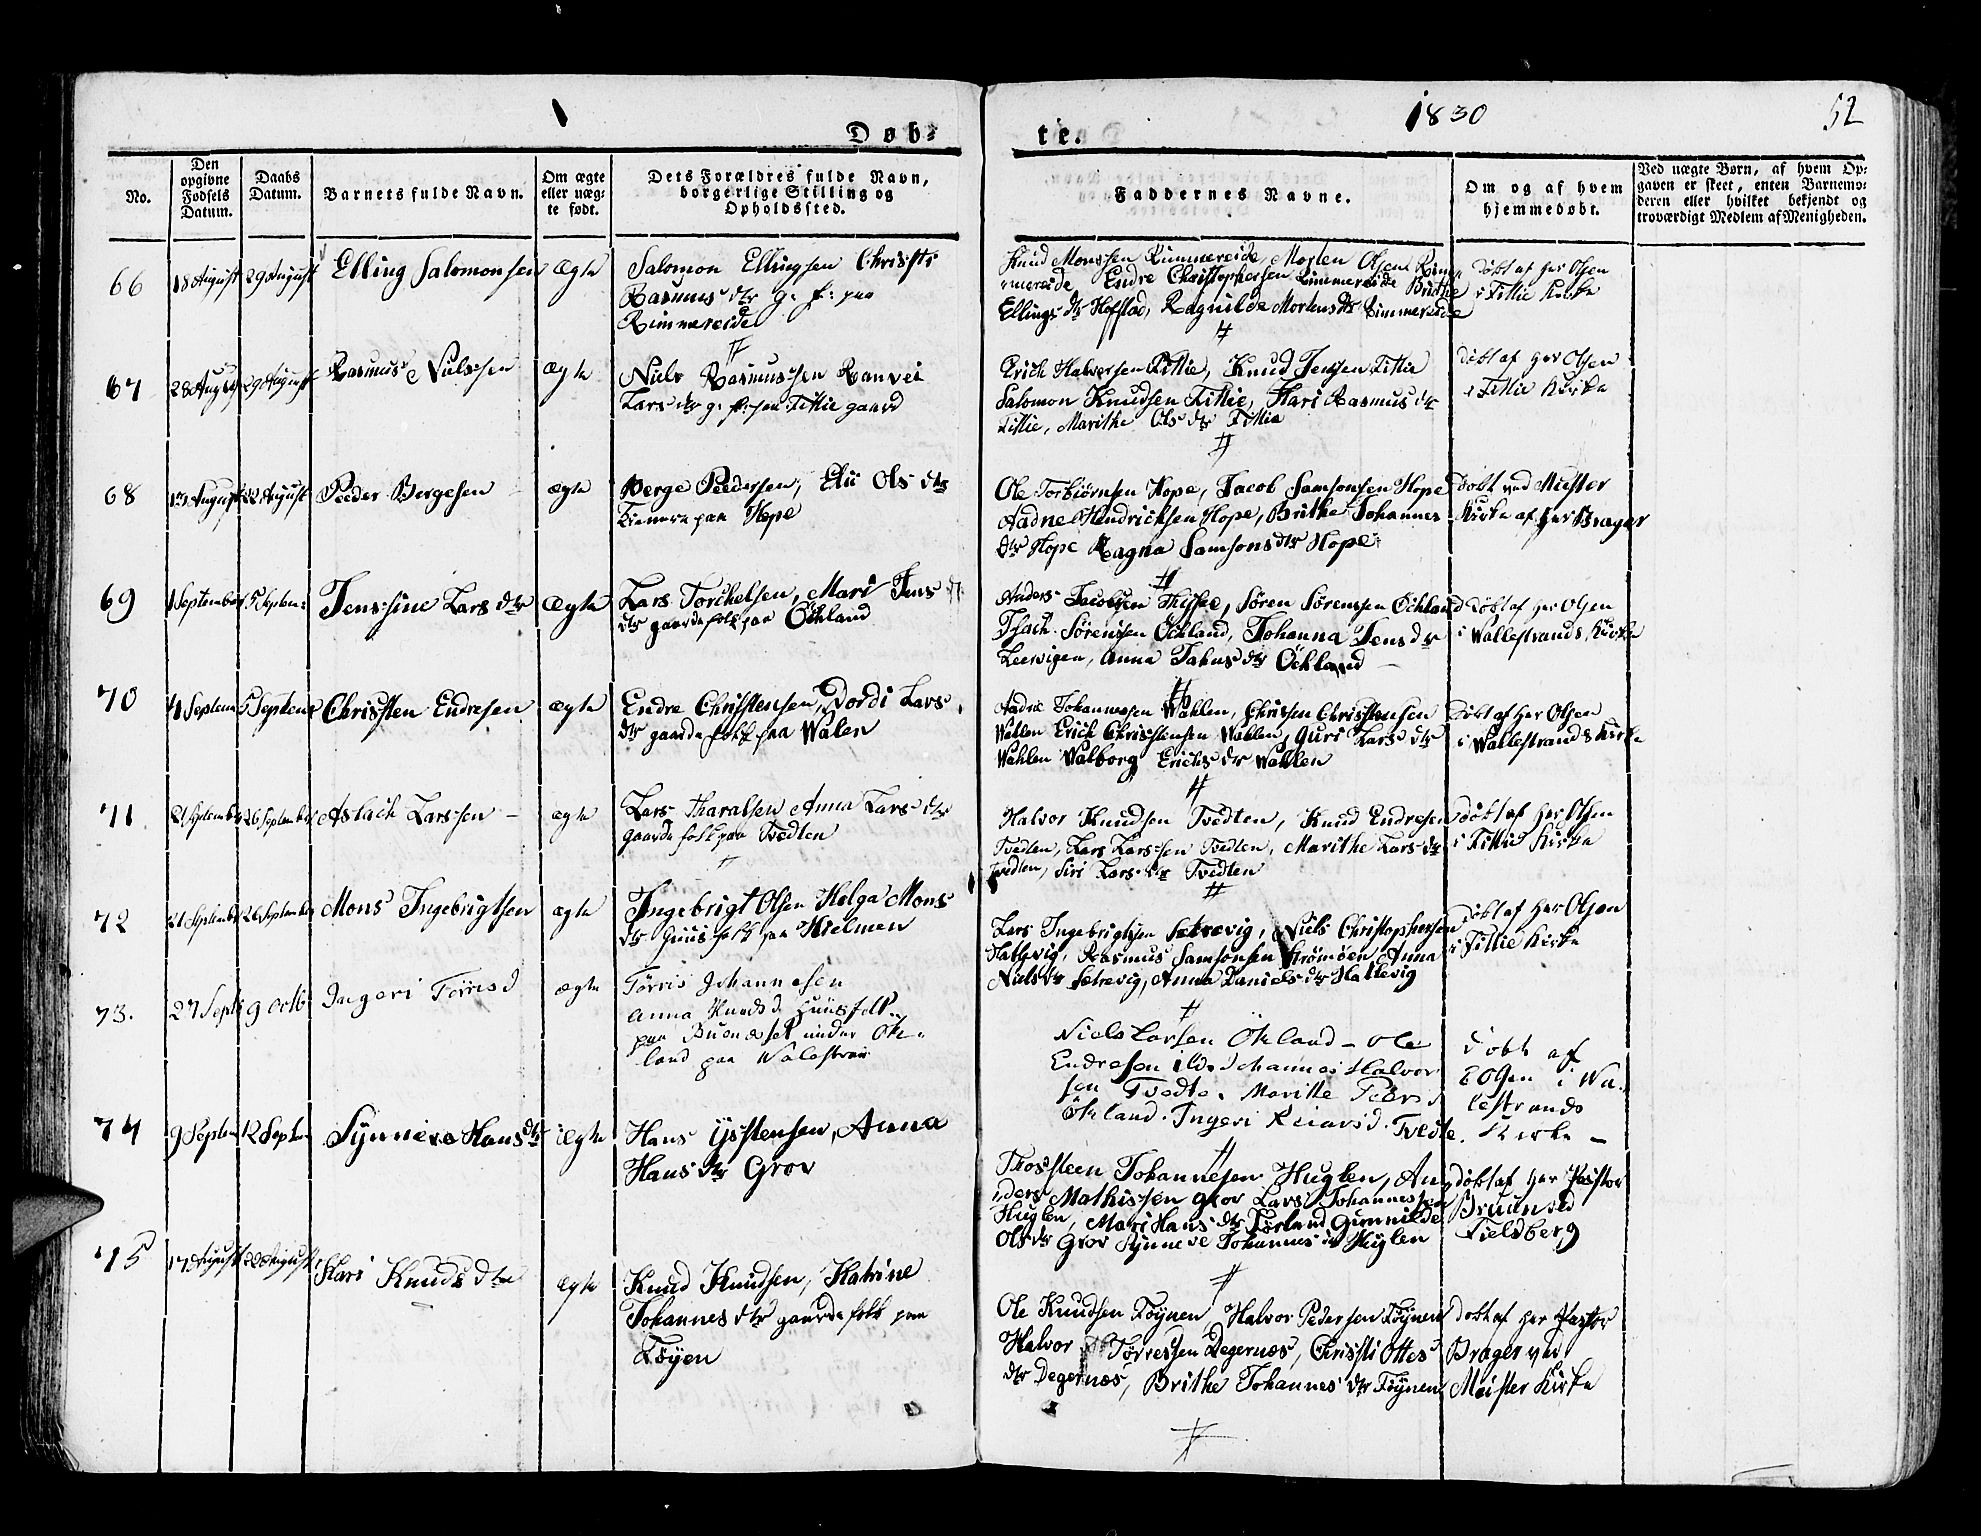 1830
52
Døb-
te.
No.
Den opgivne Fødsels Datum.
Daabs Datum.
Barnets fulde Navn.
Om ægte eller uægte født.
Dets Forældres fulde Navn, borgerlige Stilling og Opholdssted.
Faddernes Navne.
Om og af hvem hjemmedøbt.
Ved uægte Børn, af hvem Op-
gaven er skeet, enten Barnemo-
deren eller hvilket bekjendt og
troværdigt Medlem af Menigheden.
66
18 August
29 August
Elling Salomonsen
Ægte
Salomon Ellingsen Christi
Rasmus dtr g: f: paa
Rimmereide
Knud Monssen Rimmereide, Morten Olsen Rim-
mereide Endre Christophersen Rimmereide Brithe
Ellings dtr Hofstad, Ragnilde Mortens dtr Rimmereide
Døbt af Her Olsen
i Fittie Kirke
67
28 August
29 August
Rasmus Nielssen
Ægte
Niels Rasmussen Ranvei
Lars dtr g: f: paa Fittie gaard
Erich Halvorsen Fittie, Knud Jenssen Fittie
Salomon Knudsen Fittie, Kari Rasmus dtr
Fittie, Marithe Ols dtr Fittie
Døbt af Her Olsen
i Fittie Kirke
68
August
22 August
Peder Bergesen
ægte
Berge Pedersen, Elii Ols dtr
paa Hope
Ole Torbiørnsen Hope, Jacob Samsonsen Hope
Aadne Hendricksen Hope, Brithe Johannes
dtr Hope Ragna Samsons dtr Hope
Døbt ved Müster
Kirke af Her Brager
69
1 September
5 Septem:
Jenssine Lars dtr
Ægte
Lars Torchelsen, Mari Jens
dtr gaardefolk paa Öchland
Anders Jacobsen, Søren Sørenssen Öchland
Isach Sørenssen Öchland, Johanna Jens dtr
Leervigen, Anna Jahns dtr Öchland
Døbt af Her Olsen
i Wallestrands Kirke
70
4 Septem
5 Septem
Christen Endresen
ægte
Endre Christensen, Dordi Lars
dtr gaardefolk paa Walen
Aadne Johannesen Wahlen, Christen Christensen
Wahlen Erich Christensen Wahlen, Guri Lars dtr
Wahlen Walborg Erichs dtr Wahlen
Døbt af Her Olsen
i Wallestrands Kirke
71
21 September
26 September
Aslach Larssen
ægte
Lars Haralsen Anna Lars dtr
gaardefolk paa Tvedten
Halvor Knudsen Tvedten, Knud Endresen
Tvedten, Lars Larssen Tvedten, Marithe Lars dtr
Tvedten, Siri Lars dtr Tvedten
døbt af Her Olsen
i Fittie Kirke
72
21 September
26 September
Mons Ingebrigtsen
ægte
Ingebrigt Olsen Helga Mons
dtr Huusfolk paa Hielmen
Lars Ingebrigtsen Setrevig, Niels Christophersen
Hattevig, Rasmus Samsonsen Strømøen Anna
Niels dtr Setrevig, Anna Daniels dtr Hattevig
Døbt af Her Olsen
i Fittie Kirke
73.
27 Septb
9 Octb
Ingeri Tørrisd
ægte
Tørris Johannesen
Anna Knudsd. Huusfolk
paa Buenesset under Ök-
land paa Walestran
Niels Larsen Ökland - Ole
Endresen ild. Johannes Halvor
sen Tvedte. Maritte Peders d
Ökland. Ingeri Reiarsd. Tvedte.
døbt af
E Olsen i Wa-
lestrands
Kirke -
74
9 Septem
12 Septem
Synneve Hans dtr
Ægte
Hans Ystensen, Anna
Hans dtr Grov
Trossteen Johannesen Huglen, An-
ders Mathissen Grov Lars Johannessen
Huglen, Mari Hans dtr Førland Gunnilde
Ols dtr Grov Synneve Johannes dtr Huglen
døbt af Her Pastor
Bruun ved
Fieldberg
75
17 August
22 August
Kari Knuds dtr
ægte
Knud Knudsen, Katrine
Johannes dtr gaardefolk paa
Føyen
Ole Knudsen Føynen, Halvor Pedersen Føynen
Halvor Tørressen Degernæs, Christi Ottes
dtr Degernæs, Brithe Johannes dtr Føynen
Døbt af Her Pastor
Brager ved
Meister Kirke